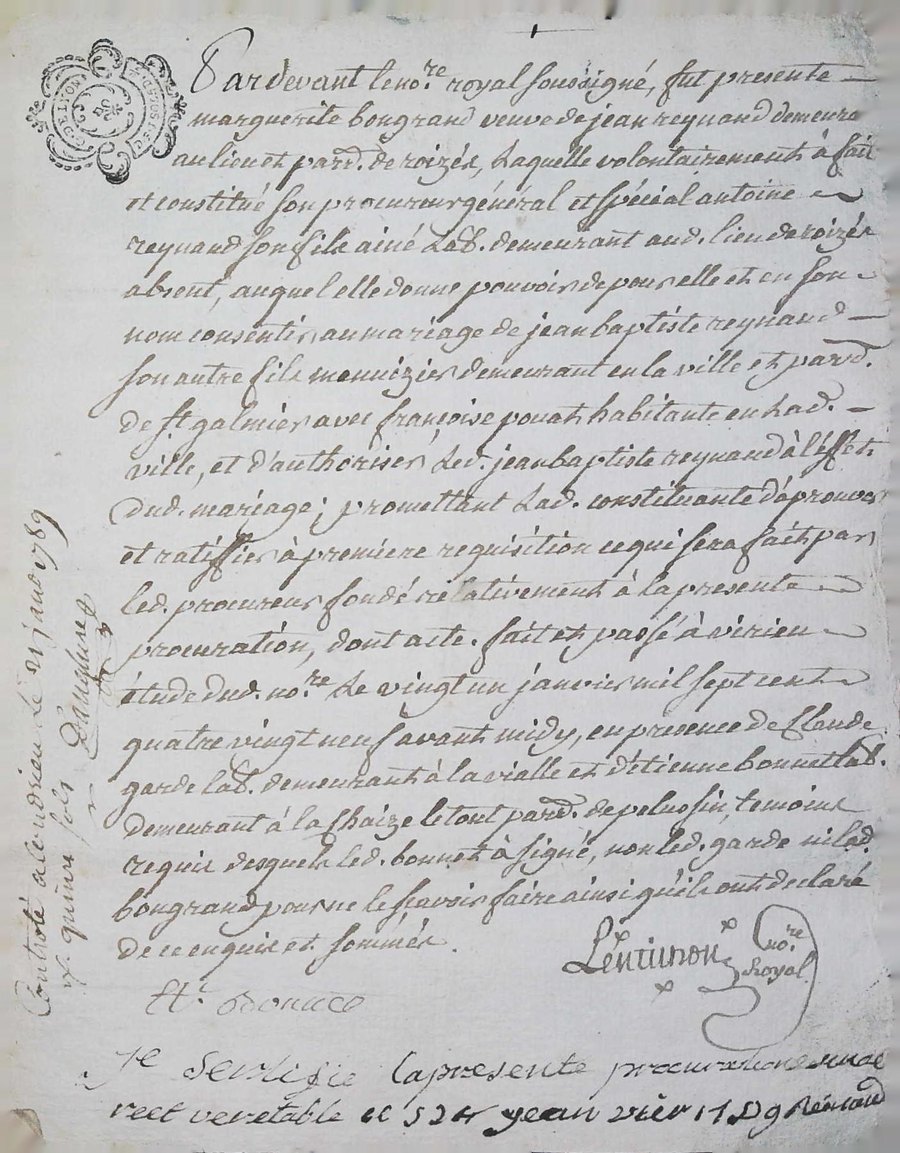 Pardevant le no.re royal soussigné, fut presente
marguerite bongrand veuve de jean reynaud demeure
au lieu et paroi. de roizés, Laquelle volontairement à fait
et constitué son procureur général et spécial antoine
reynaud son fils ainé Lab. demeurant aud. lieu de roizés
absent, auquel elle donne pouvoir de pour elle et en son
nom consentir au mariage de jean baptiste reynaud
son autre fils menuizier demeurant en la ville et paroi.
de st. galmier avec françoise pouat habitante en Lad.
ville, et d'authoriser Led. jean baptiste reynaud à l'effet
dud. mariage; promettant Lad. constituante d'aprouver
et ratiffier à premiere requisition ce qui sera fait par
led. procureur fondé rélativement à la presente
procuration, dont acte. fait et passé à virieu
étude dud. no.re Le vingt un janvier mil sept cent
quatre vingt neuf avant midy, en presence de Claude
garde lab. demeurant à la vialle et d'étienne bonnet lab.
demeurant à la Chaize le tout paroi. de pelussin, temoins
requis desquels led. bonnet à signé, non led. garde ni lad.
bongrand pour ne le scavoir faire ainsi qu'ils ont declaré
de ce enquis et sommés.
Lentinon no.re Royal
Et. bonnet
Controlé à Condrieu Le 21 janv. 1789
r. quinze sols
Je sertifie la presente procuration
veretable ce 24 jeanvier 1789 Reinaud